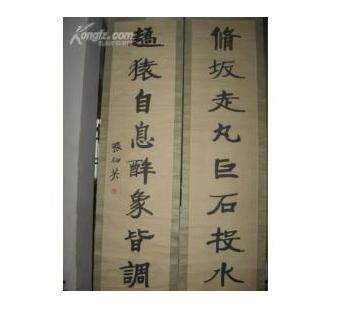 脩坂走丸巨石投水
趫猿自息醉象皆調
張伯英
Kongfz.com